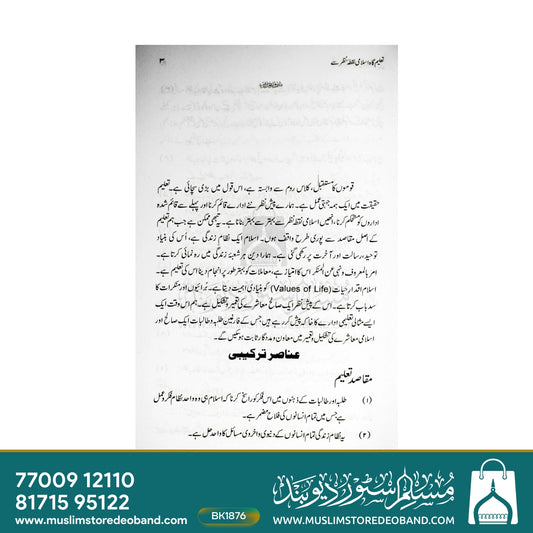 تعلیم گاہ اسلامی نقطۂ نظر سے ۳
قوموں کا مستقبل، کلاس روم سے وابستہ ہے، اس قول میں بڑی سچائی ہے۔ تعلیم
حقیقت میں ایک ہمہ جہتی عمل ہے۔ ہمارے پیش نظر نئے ادارے قائم کرنا اور پہلے سے قائم شدہ
اداروں کو مستحکم کرنا، انھیں اسلامی نقطۂ نظر سے بہتر سے بہتر بنانا ہے۔ یہ تبھی ممکن ہے جب ہم تعلیم
کے اصل مقاصد سے پوری طرح واقف ہوں۔ اسلام ایک نظام زندگی ہے، اُس کی بنیاد
توحید، رسالت اور آخرت پر رکھی گئی ہے۔ ہمارا دین ہر شعبۂ زندگی میں رہ نمائی کرتا ہے۔
امر بالمعروف ونہی عن المنکر اس کا امتیاز ہے، معاملات کو بہتر طور پر انجام دینا اس کی تعلیم ہے۔
اسلام اقدار حیات (Values of Life) کو بنیادی اہمیت دیتا ہے۔ بُرائیوں اور منکرات کا
سد باب کرتا ہے۔ اس کے پیش نظر ایک صالح معاشرے کی تعمیر و تشکیل ہے۔ ہم اس وقت ایک
ایسے مثالی تعلیمی ادارے کا خاکہ پیش کر رہے ہیں جس کے فارغین طلبہ و طالبات ایک صالح اور
اسلامی معاشرے کی تشکیل و تعمیر میں معاون و مددگار ثابت ہو سکیں گے۔
عناصر ترکیبی
مقاصد تعلیم
(۱) طلبہ اور طالبات کے ذہنوں میں اس فکر کو راسخ کرنا کہ اسلام ہی وہ واحد نظام فکر و عمل
ہے جس میں تمام انسانوں کی فلاح مضمر ہے۔
(۲) یہ نظام زندگی تمام انسانوں کے دنیوی و اخروی مسائل کا واحد حل ہے۔
77009 12110
81715 95122
www.muslimstoredeoband.com
BK1876
مسلم اسٹور دیوبند
WWW.MUSLIMSTOREDEOBAND.COM